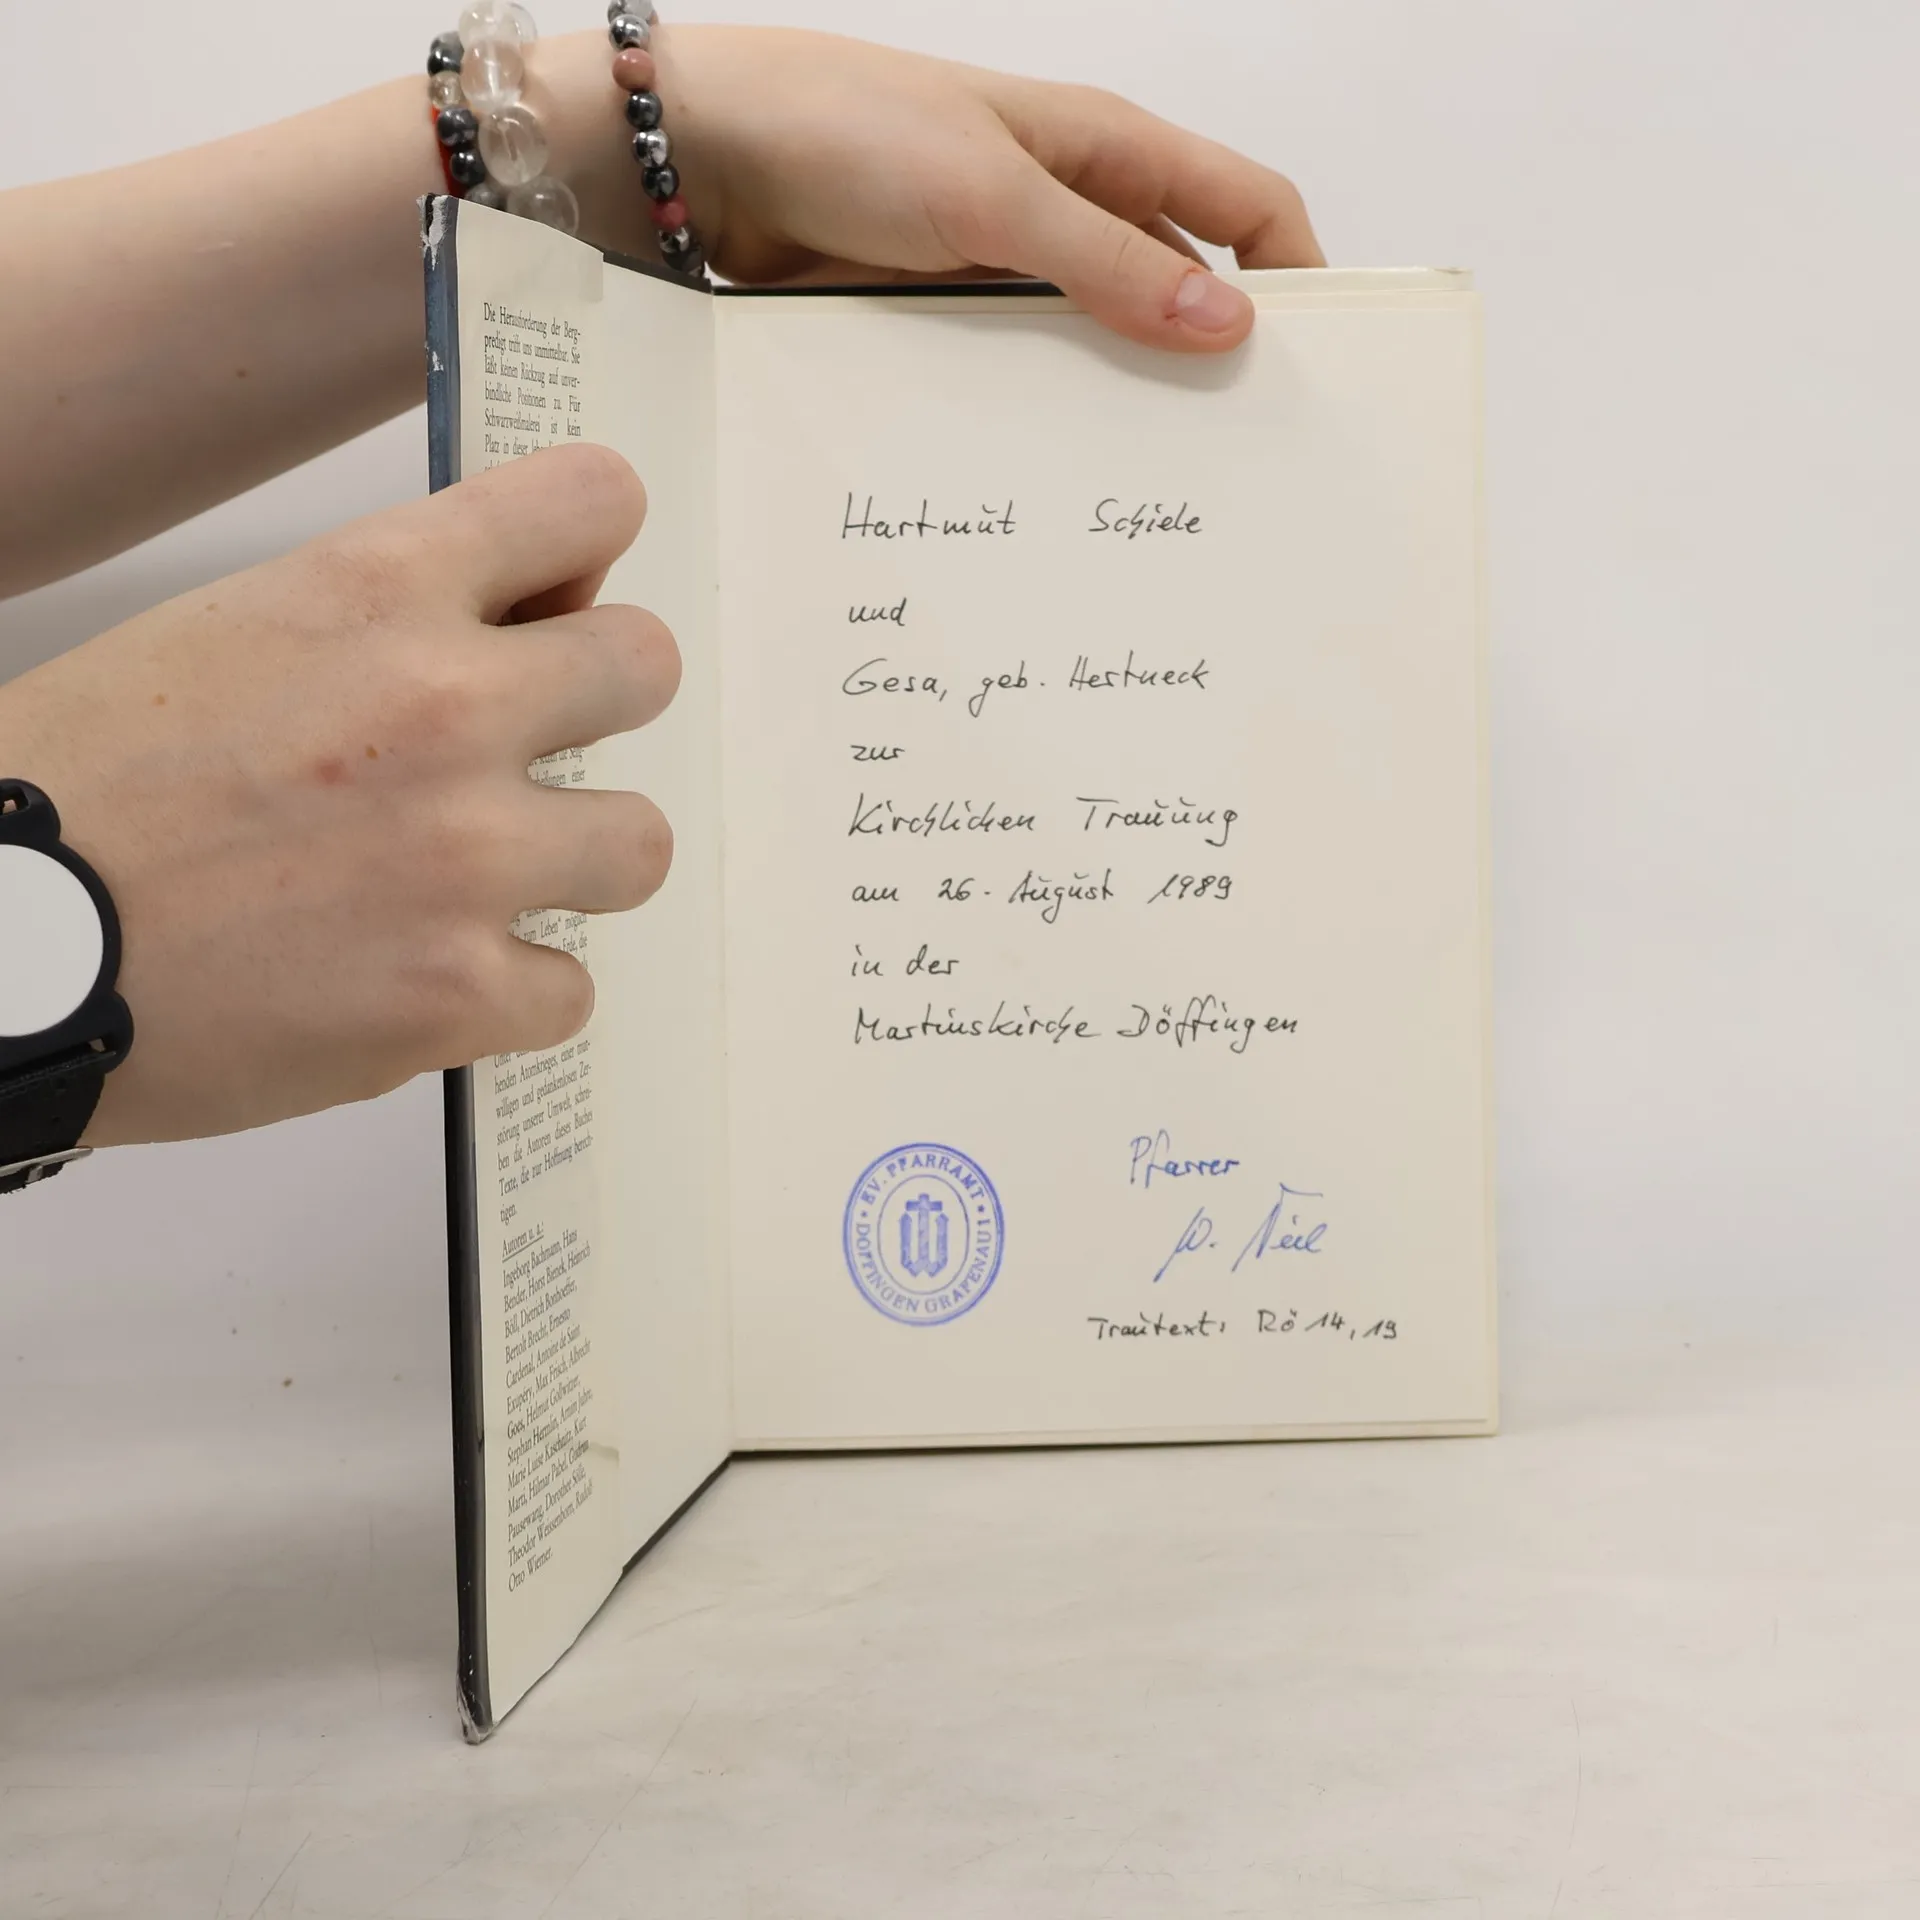 Die Herausforderung der Berg-
predigt trifft uns unmittelbar. Sie
läßt keinen Rückzug auf unver-
bindliche Positionen zu. Für
Schwarzweißmalerei ist kein
Platz in dieser
einer
zum Leben" möglich
Erde, die
Unter
henden Atomkrieges, einer mut-
willigen und gedankenlosen Zer-
störung unserer Umwelt, schrei-
ben die Autoren dieses Buches
Texte, die zur Hoffnung berech-
tigen.
Autoren u. a.:
Ingeborg Bachmann, Hans
Bender, Horst Bienek, Heinrich
Böll, Dietrich Bonhoeffer,
Bertolt Brecht, Ernesto
Cardenal, Antoine de Saint
Exupéry, Max Frisch, Albrecht
Goes, Helmut Gollwitzer,
Stephan Hermlin, Armin Juhre,
Marie Luise Kaschnitz, Kurt
Marti, Hilmar Pabel, Gudrun
Pausewang, Dorothee Sölle,
Theodor Weissenborn, Rudolf
Otto Wiemer.
Hartmut Schiele
und
Gesa, geb. Hestneck
zur
Kirchlichen Trauung
am 26. August 1989
in der
Martinskirche Döffingen
EV. PFARRAMT I
DÖFFINGEN GRAFENAU
Pfarrer
W.
Trautext: Rö 14,19